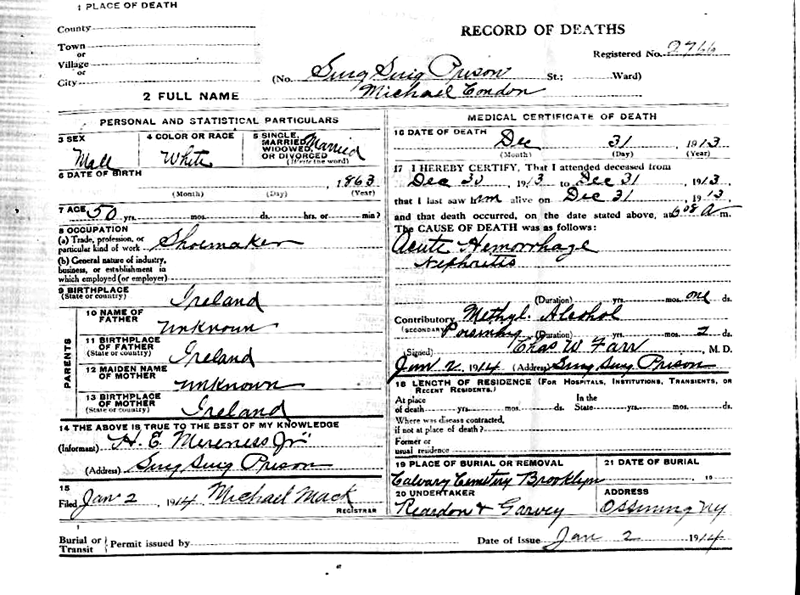 1 PLACE OF DEATH
RECORD OF DEATHS
County
Town
or
Village
or
City
Registered No.
(No. Sing Sing Prison St.; Ward)
2 FULL NAME Michael Condon
PERSONAL AND STATISTICAL PARTICULARS
3 SEX
Male
4 COLOR OR RACE
White
5 SINGLE,
MARRIED,
WIDOWED,
OR DIVORCED
(Write the word)
Married
6 DATE OF BIRTH
1863
(Month) (Day) (Year)
7 AGE 50 yrs. mos. ds. hrs. or min?
8 OCCUPATION
(a) Trade, profession, or
particular kind of work Shoemaker
(b) General nature of industry,
business, or establishment in
which employed (or employer)
9 BIRTHPLACE
(State or country) Ireland
PARENTS
10 NAME OF
FATHER unknown
11 BIRTHPLACE
OF FATHER
(State or country) Ireland
12 MAIDEN NAME
OF MOTHER unknown
13 BIRTHPLACE
OF MOTHER
(State or country) Ireland
14 THE ABOVE IS TRUE TO THE BEST OF MY KNOWLEDGE
(Informant) H. E. Mereness Jr.
(Address) Sing Sing Prison
15
Filed Jan 2 1914 Michael Mack
REGISTRAR
MEDICAL CERTIFICATE OF DEATH
16 DATE OF DEATH
Dec 31 1913
(Month) (Day) (Year)
17 I HEREBY CERTIFY, That I attended deceased from
Dec 30 1913 to Dec 31 1913,
that I last saw him alive on Dec 31 1913
and that death occurred, on the date stated above, at 6:08 A m.
The CAUSE OF DEATH was as follows:
Acute Hemorrhage
Nephritis
(Duration) yrs. mos. one ds.
Contributory Methyl. Alcohol
(SECONDARY) Poisoning (Duration) yrs. mos. 2 ds.
(Signed) Chas W. Farr M. D.
Jan 2 1914 (Address) Sing Sing Prison
18 LENGTH OF RESIDENCE (FOR HOSPITALS, INSTITUTIONS, TRANSIENTS, OR
RECENT RESIDENTS.)
At place In the
of death yrs. mos. ds. State yrs. mos. ds.
Where was disease contracted,
if not at place of death?
Former or
usual residence
19 PLACE OF BURIAL OR REMOVAL
Calvary Cemetery Brooklyn
21 DATE OF BURIAL
19
20 UNDERTAKER
Reardon & Garvey
ADDRESS
Ossining Ny
Burial or
Transit } Permit issued by
Date of Issue Jan 2 1914